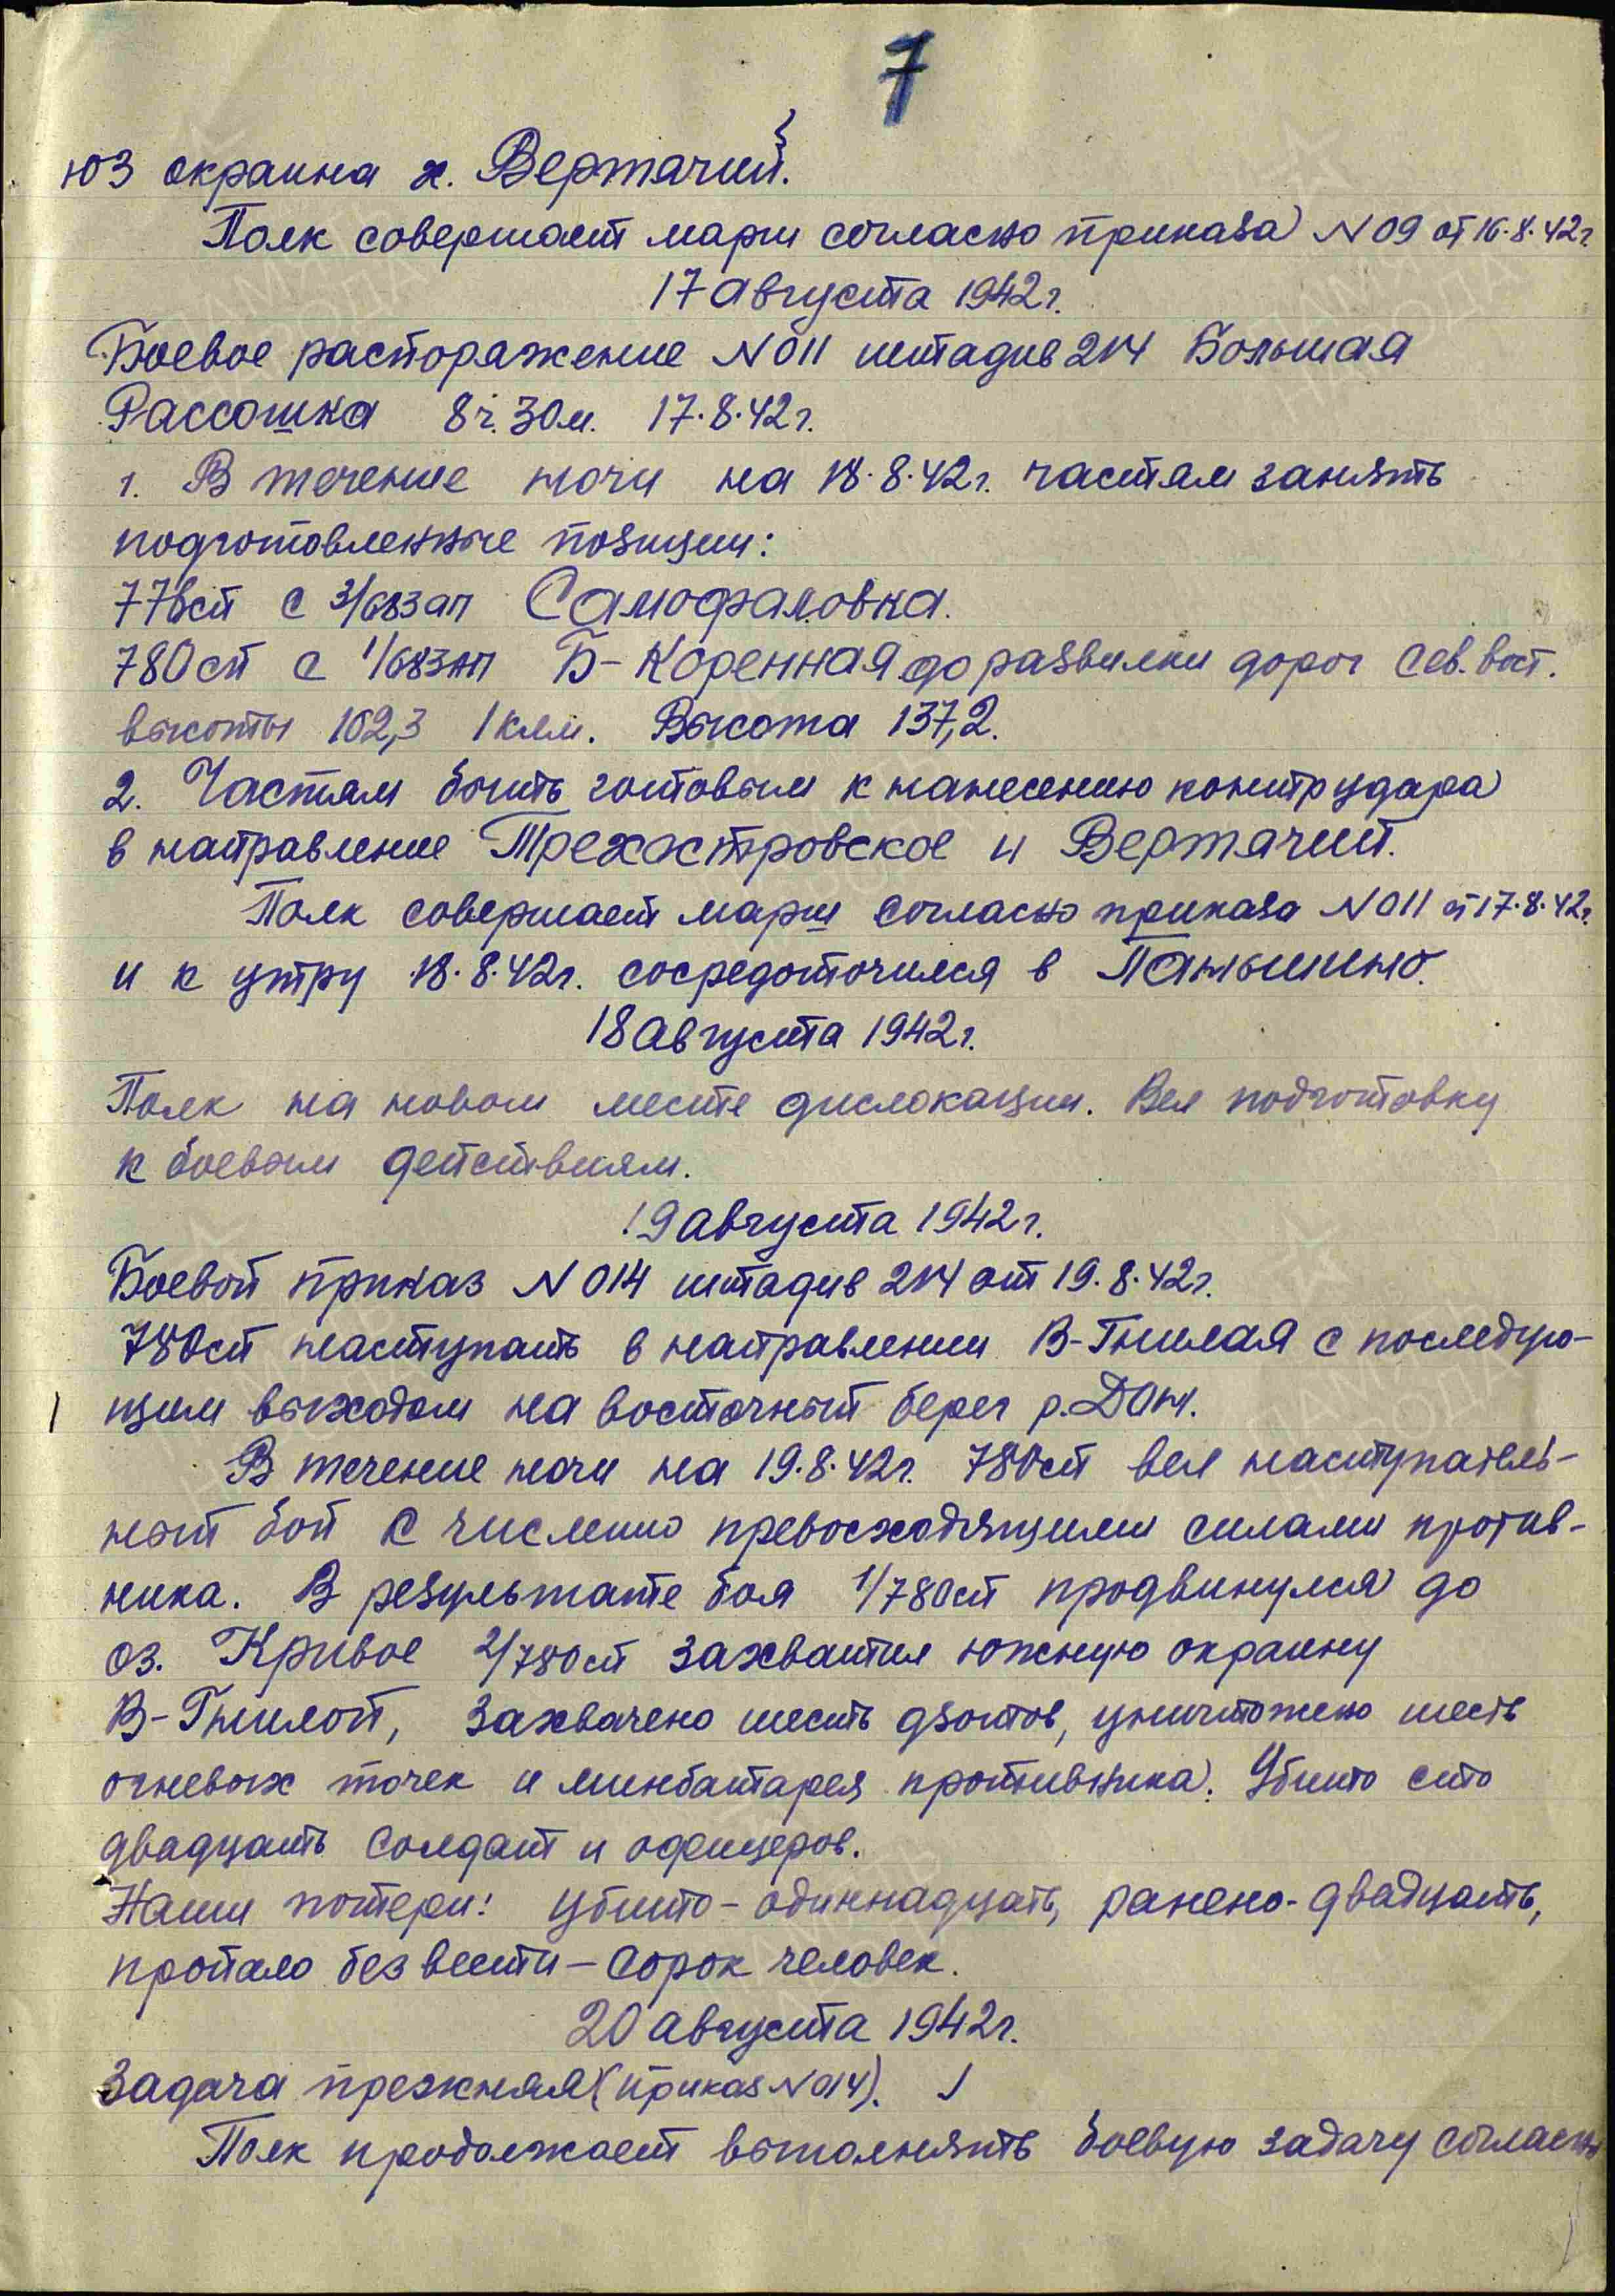 7
ЮЗ окраина х. Вертячий.
Полк совершает марш согласно приказа N 09 от 16.8.42г.
17 августа 1942г.
Боевое распоряжение N 011 штадив 214 Большая
Рассошка 8ч.30м. 17.8.42г.
1. В течение ночи на 18.8.42г. частям занять
подготовленные позиции:
776сп с 3/683ап Самофаловка.
780сп с 1/683ап Б-Коренная до развилки дорог сев.вост.
высоты 102,3 1 клм. Высота 137,2.
2. Частям быть готовым к нанесению контрудара
в направление Трехостровское и Вертячий.
Полк совершает марш согласно приказа N 011 от 17.8.42г.
и к утру 18.8.42г. сосредоточился в Паньшино.
18 августа 1942г.
Полк на новом месте дислокации. Вел подготовку
к боевым действиям.
19 августа 1942г.
Боевой приказ N 014 штадив 214 от 19.8.42г.
780сп наступать в направлении В-Гнилая с последую-
щим выходом на восточный берег р.Дон.
В течение ночи на 19.8.42г. 780сп вел наступатель-
ный бой с числено превосходящими силами против-
ника. В результате боя 1/780сп продвинулся до
оз. Кривое 2/780сп захватил южную окраину
В-Гнилой, захвачено шесть дзотов, уничтожено шесть
огневых точек и минбатарея противника. Убито сто
двадцать солдат и офицеров.
Наши потери: убито - одиннадцать, ранено - двадцать,
пропало без вести - сорок человек.
20 августа 1942г.
Задача прежняя (приказ N 014).
Полк продолжает выполнять боевую задачу согласно